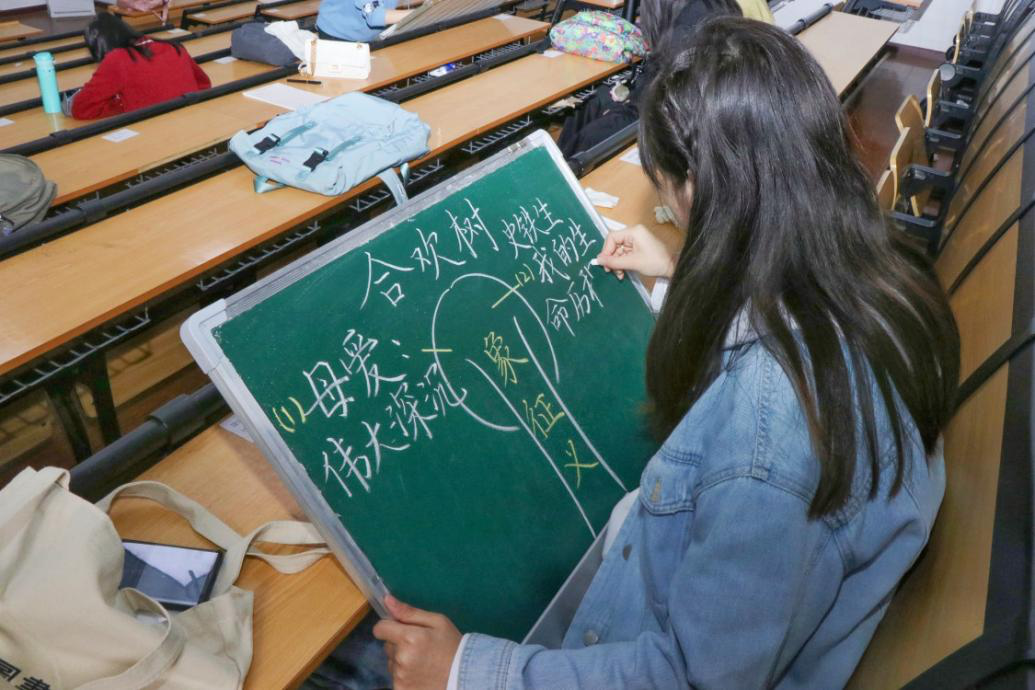 合欢树
史铁生
(1)母爱:
伟大深沉
(2)我的生
命历
象征义